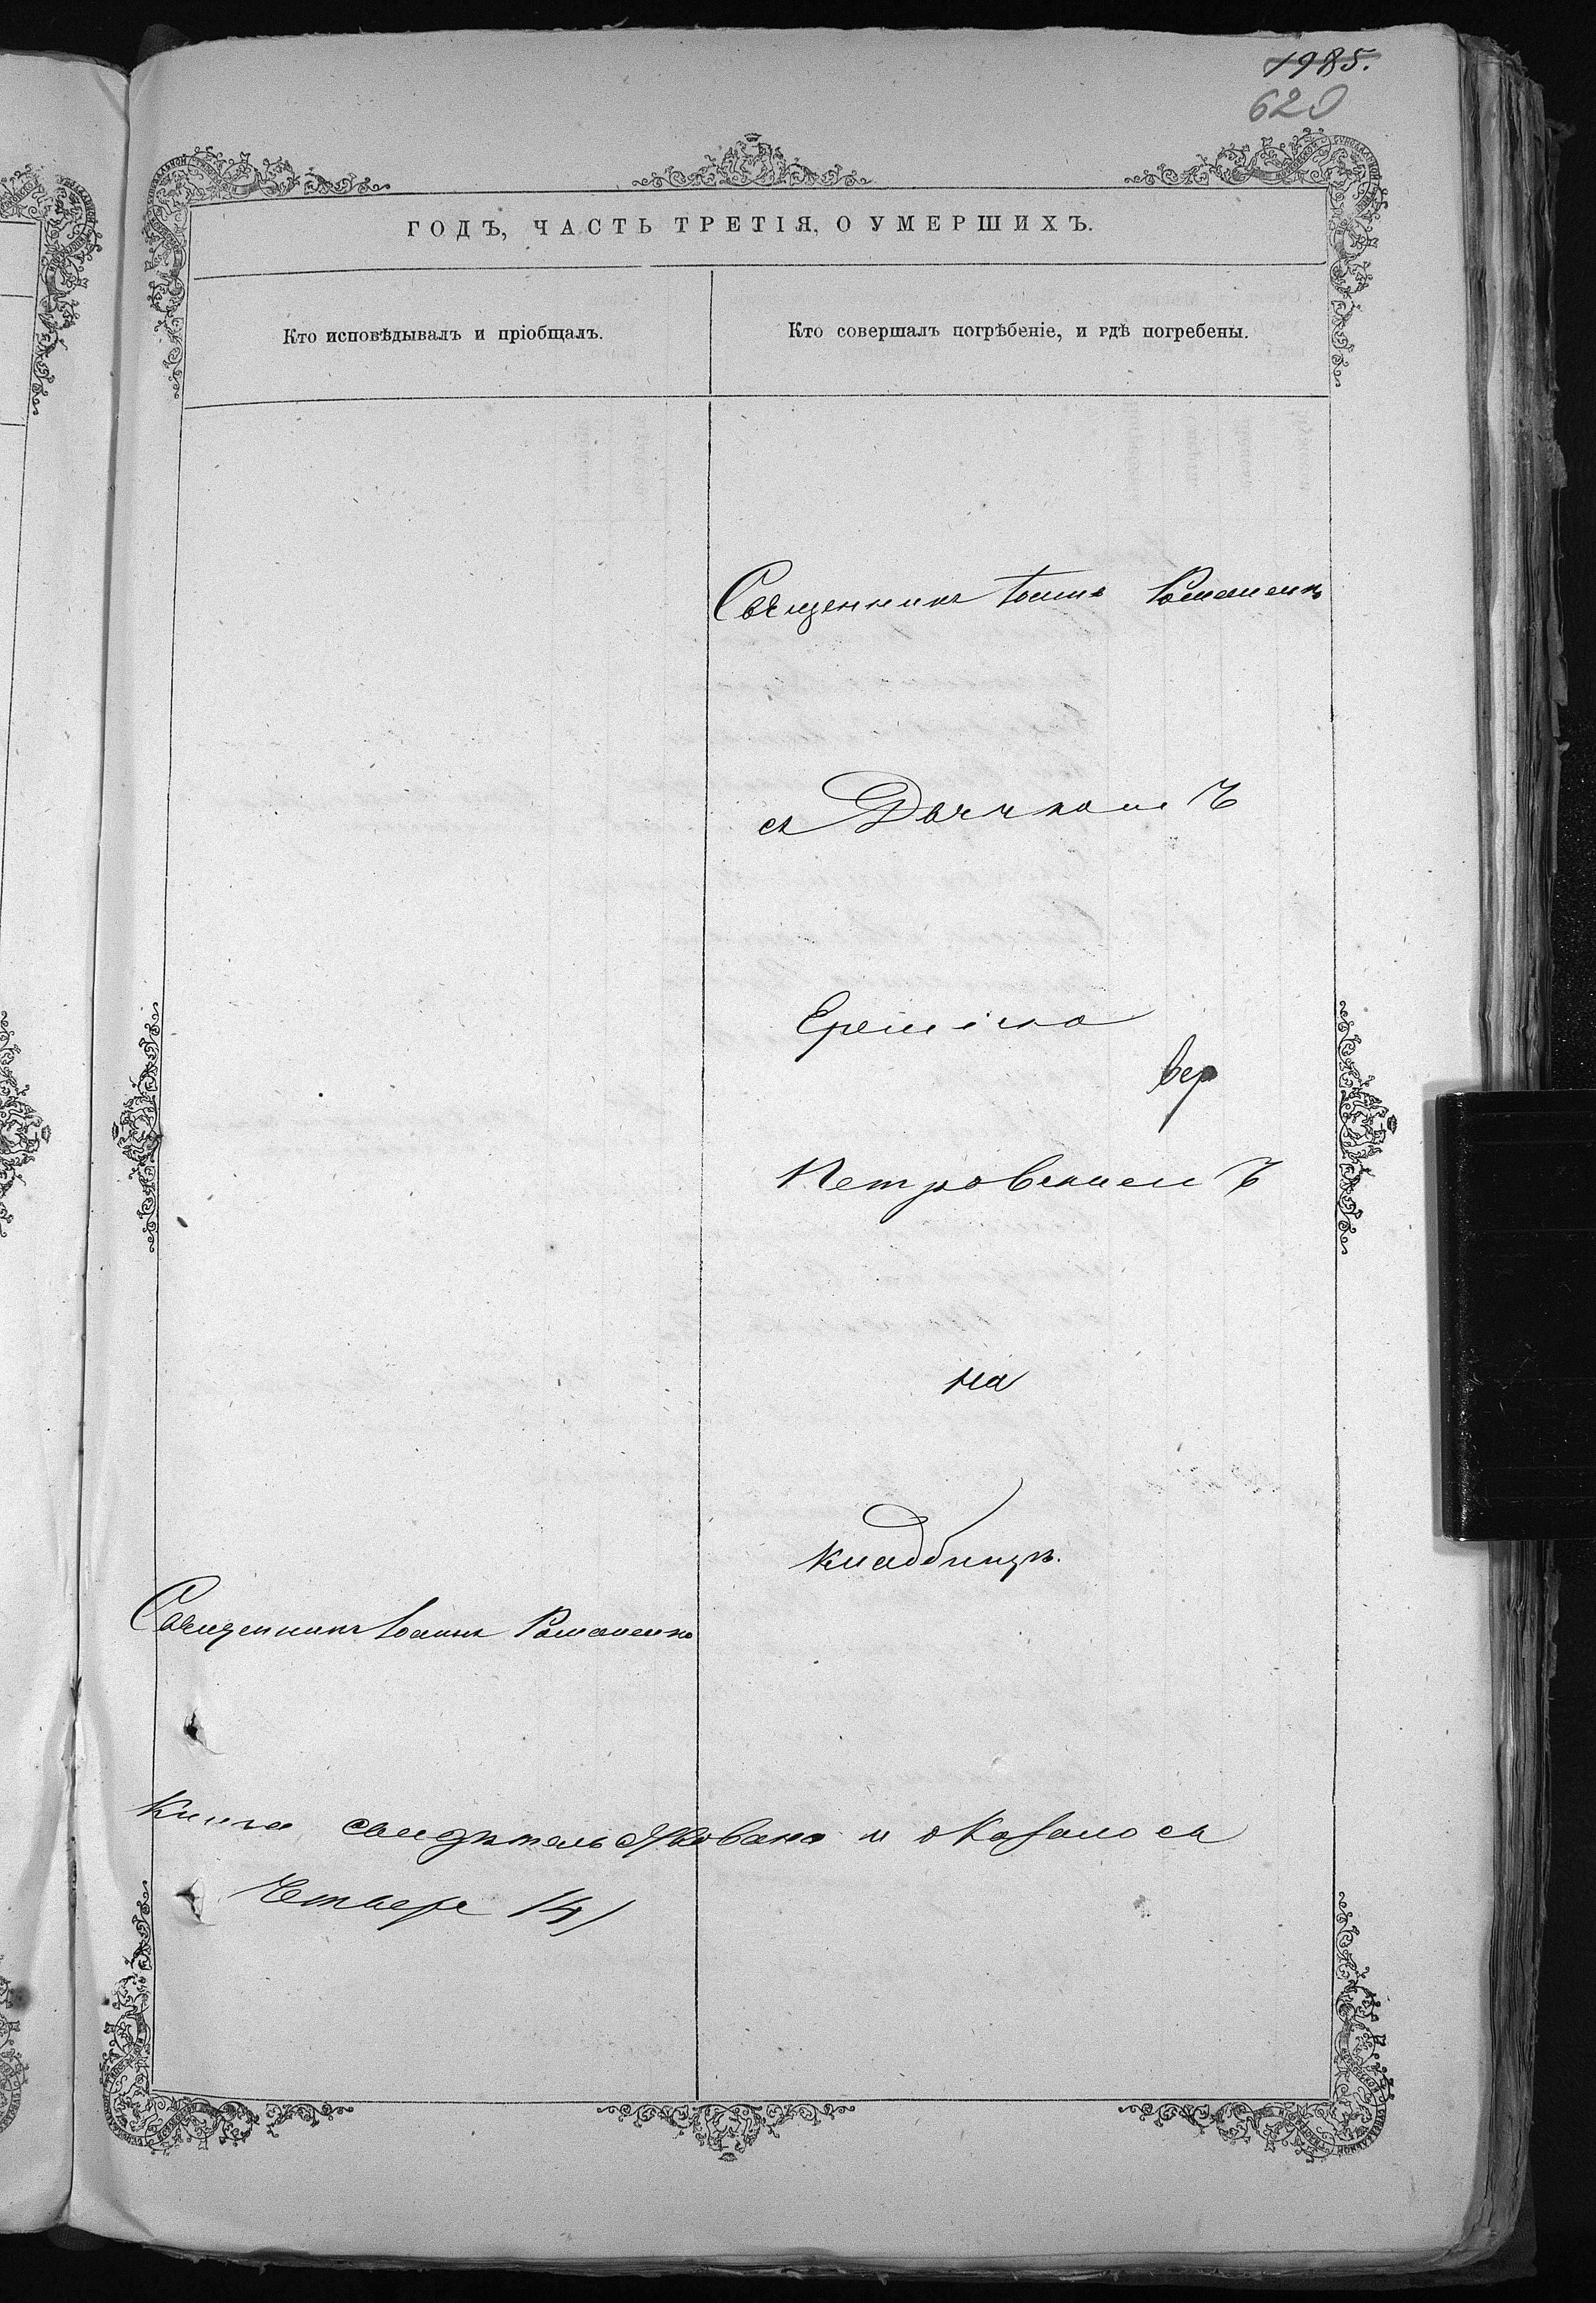 1985.
620
ГОДЪ, ЧАСТЬ ТРЕТІЯ, О УМЕРШИХЪ.
Кто исповѣдывалъ и пріобщалъ.
Кто совершалъ погрѣбеніе, и гдѣ погребены.
Священникъ Іоаннъ Романенко
съ Дьячкомъ
Петровскимъ
на
кладбищѣ.
Священникъ Іоаннъ Романенко
Книга свидѣтельствована и оказалось